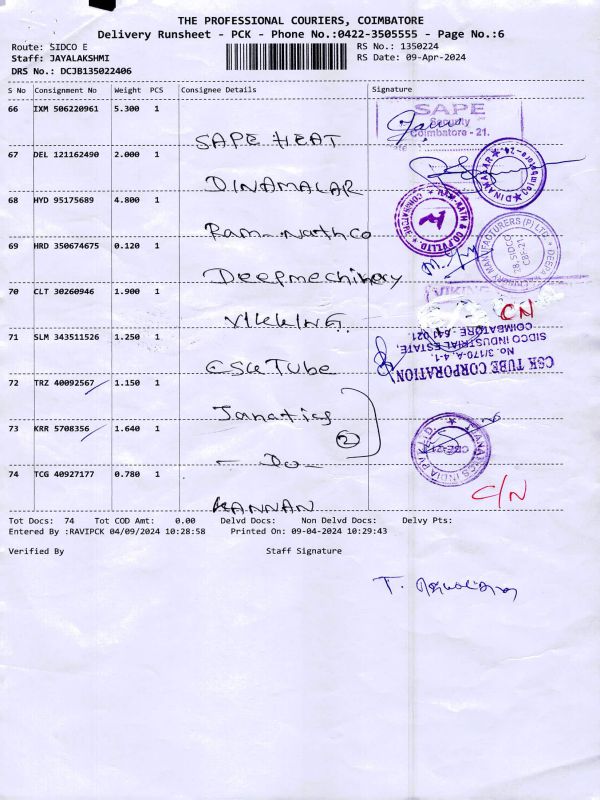 THE PROFESSIONAL COURIERS, COIMBATORE
Delivery Runsheet - PCK - Phone No.:0422-3505555 - Page No.:6
Route: SIDCO E
RS No.: 1350224
Staff: JAYALAKSHMI
RS Date: 09-Apr-2024
DRS No.: DCJB135022406
S No Consignment No Weight PCS Consignee Details Signature
66 IXM 506220961 5.300 1
SAPE HEAT
SAPE
Security
Coimbatore - 21.
67 DEL 121162490 2.000 1
DINAMALAR
DINAMALAR
68 HYD 95175689 4.800 1
Ram-Nath Co
RAM-NATH & CO.PVT.LTD.
COIMBATORE
69 HRD 350674675 0.120 1
Deepmechinery
MANUFACTURERS (P) LTD.
SIDCO
CBE-21
70 CLT 30260946 1.900 1
VIKKING.
VIKING
CN
71 SLM 343511526 1.250 1
CSK Tube
CSK TUBE CORPORATION
No. 3/170-A-4-1,
SIDCO INDUSTRIAL ESTATE,
COIMBATORE - 641 021.
72 TRZ 40092567 1.150 1
Janatics
2
73 KRR 5708356 1.640 1
- Do -
JANATICS INDIA PVT LTD.
CBE-21
74 TCG 40927177 0.780 1
KANNAN
C/N
Tot Docs: 74 Tot COD Amt: 0.00 Delvd Docs: Non Delvd Docs: Delvy Pts:
Entered By :RAVIPCK 04/09/2024 10:28:58 Printed On: 09-04-2024 10:29:43
Verified By Staff Signature